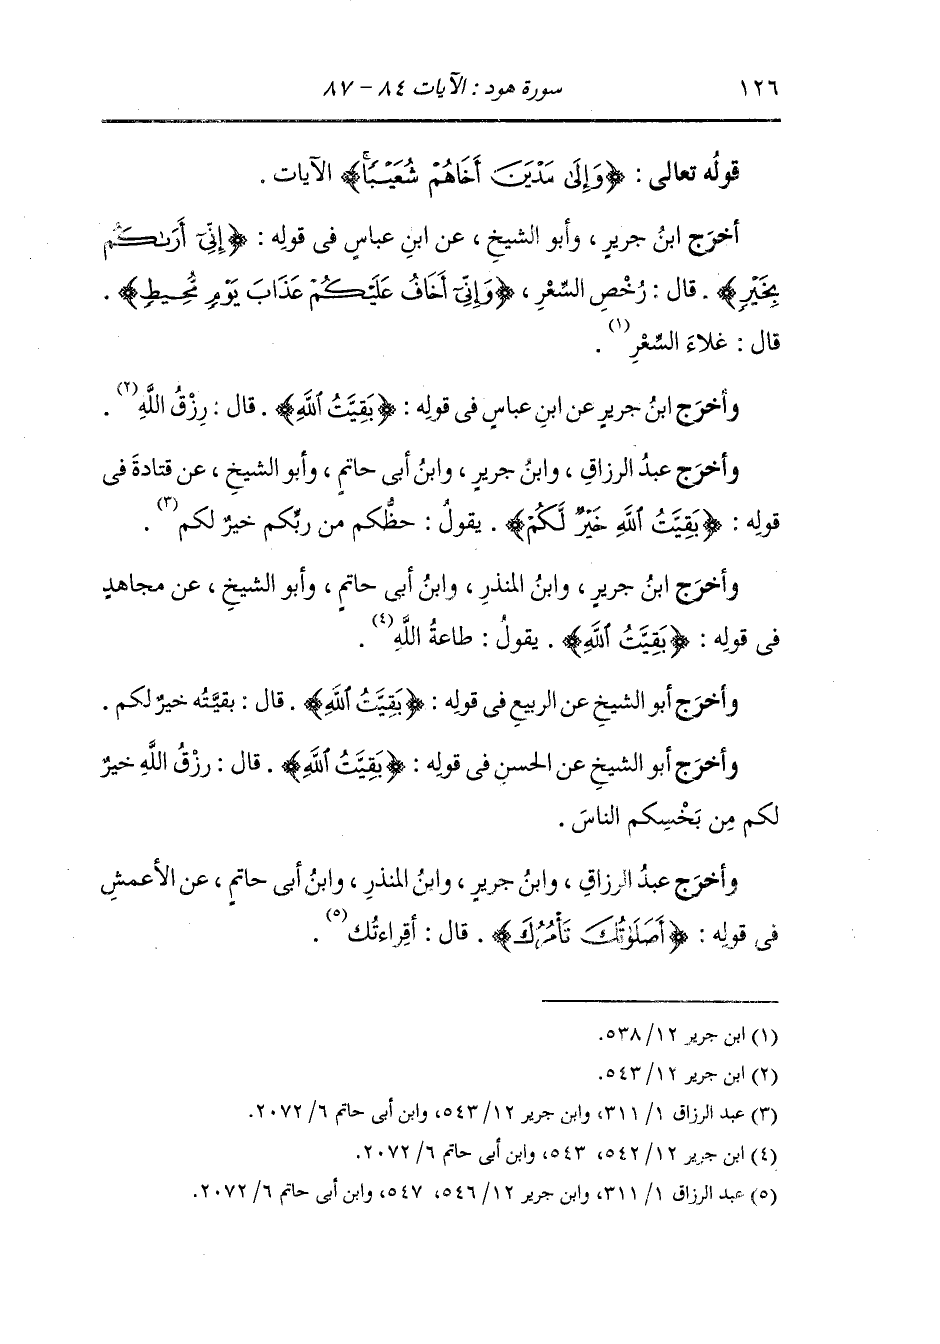 ١٢٦ سورة هود : الآيات ٨٤ - ٨٧
قولُه تعالى : ﴿وَإِلَىٰ مَدْيَنَ أَخَاهُمْ شُعَيْبًا﴾ الآيات .
أخرَج ابنُ جريرٍ ، وأبو الشيخِ ، عن ابنِ عباسٍ فى قولِه : ﴿إِنِّىٓ أَرَىٰكُم
بِخَيْرٍ﴾ . قال : رُخْصِ السِّعْرِ ، ﴿وَإِنِّىٓ أَخَافُ عَلَيْكُمْ عَذَابَ يَوْمٍ مُّحِيطٍ﴾ .
قال : غلاءَ السِّعْرِ(١) .
وأخرَج ابنُ جريرٍ عن ابنِ عباسٍ فى قولِه : ﴿بَقِيَّتُ ٱللَّهِ﴾ . قال : رِزْقُ اللَّهِ(٢) .
وأخرَج عبدُ الرزاقِ ، وابنُ جريرٍ ، وابنُ أبى حاتمٍ ، وأبو الشيخِ ، عن قتادةَ فى
قولِه : ﴿بَقِيَّتُ ٱللَّهِ خَيْرٌ لَّكُمْ﴾ . يقولُ : حظُّكم من ربِّكم خيرٌ لكم(٣) .
وأخرَج ابنُ جريرٍ ، وابنُ المنذرِ ، وابنُ أبى حاتمٍ ، وأبو الشيخِ ، عن مجاهدٍ
فى قولِه : ﴿بَقِيَّتُ ٱللَّهِ﴾ . يقولُ : طاعةُ اللَّهِ(٤) .
وأخرَج أبو الشيخِ عن الربيعِ فى قولِه : ﴿بَقِيَّتُ ٱللَّهِ﴾ . قال : بقيَّتُه خيرٌ لكم .
وأخرَج أبو الشيخِ عن الحسنِ فى قولِه : ﴿بَقِيَّتُ ٱللَّهِ﴾ . قال : رزْقُ اللَّهِ خيرٌ
لكم مِن بَخْسِكم الناسَ .
وأخرَج عبدُ الرزاقِ ، وابنُ جريرٍ ، وابنُ المنذرِ ، وابنُ أبى حاتمٍ ، عن الأعمشِ
فى قولِه : ﴿أَصَلَوٰتُكَ تَأْمُرُكَ﴾ . قال : أقِراءتُك(٥) .
(١) ابن جرير ١٢/ ٥٣٨.
(٢) ابن جرير ١٢/ ٥٤٣.
(٣) عبد الرزاق ١/ ٣١١، وابن جرير ١٢/ ٥٤٣، وابن أبى حاتم ٦/ ٢٠٧٢.
(٤) ابن جرير ١٢/ ٥٤٢، ٥٤٣، وابن أبى حاتم ٦/ ٢٠٧٢.
(٥) عبد الرزاق ١/ ٣١١، وابن جرير ١٢/ ٥٤٦، ٥٤٧، وابن أبى حاتم ٦/ ٢٠٧٢.